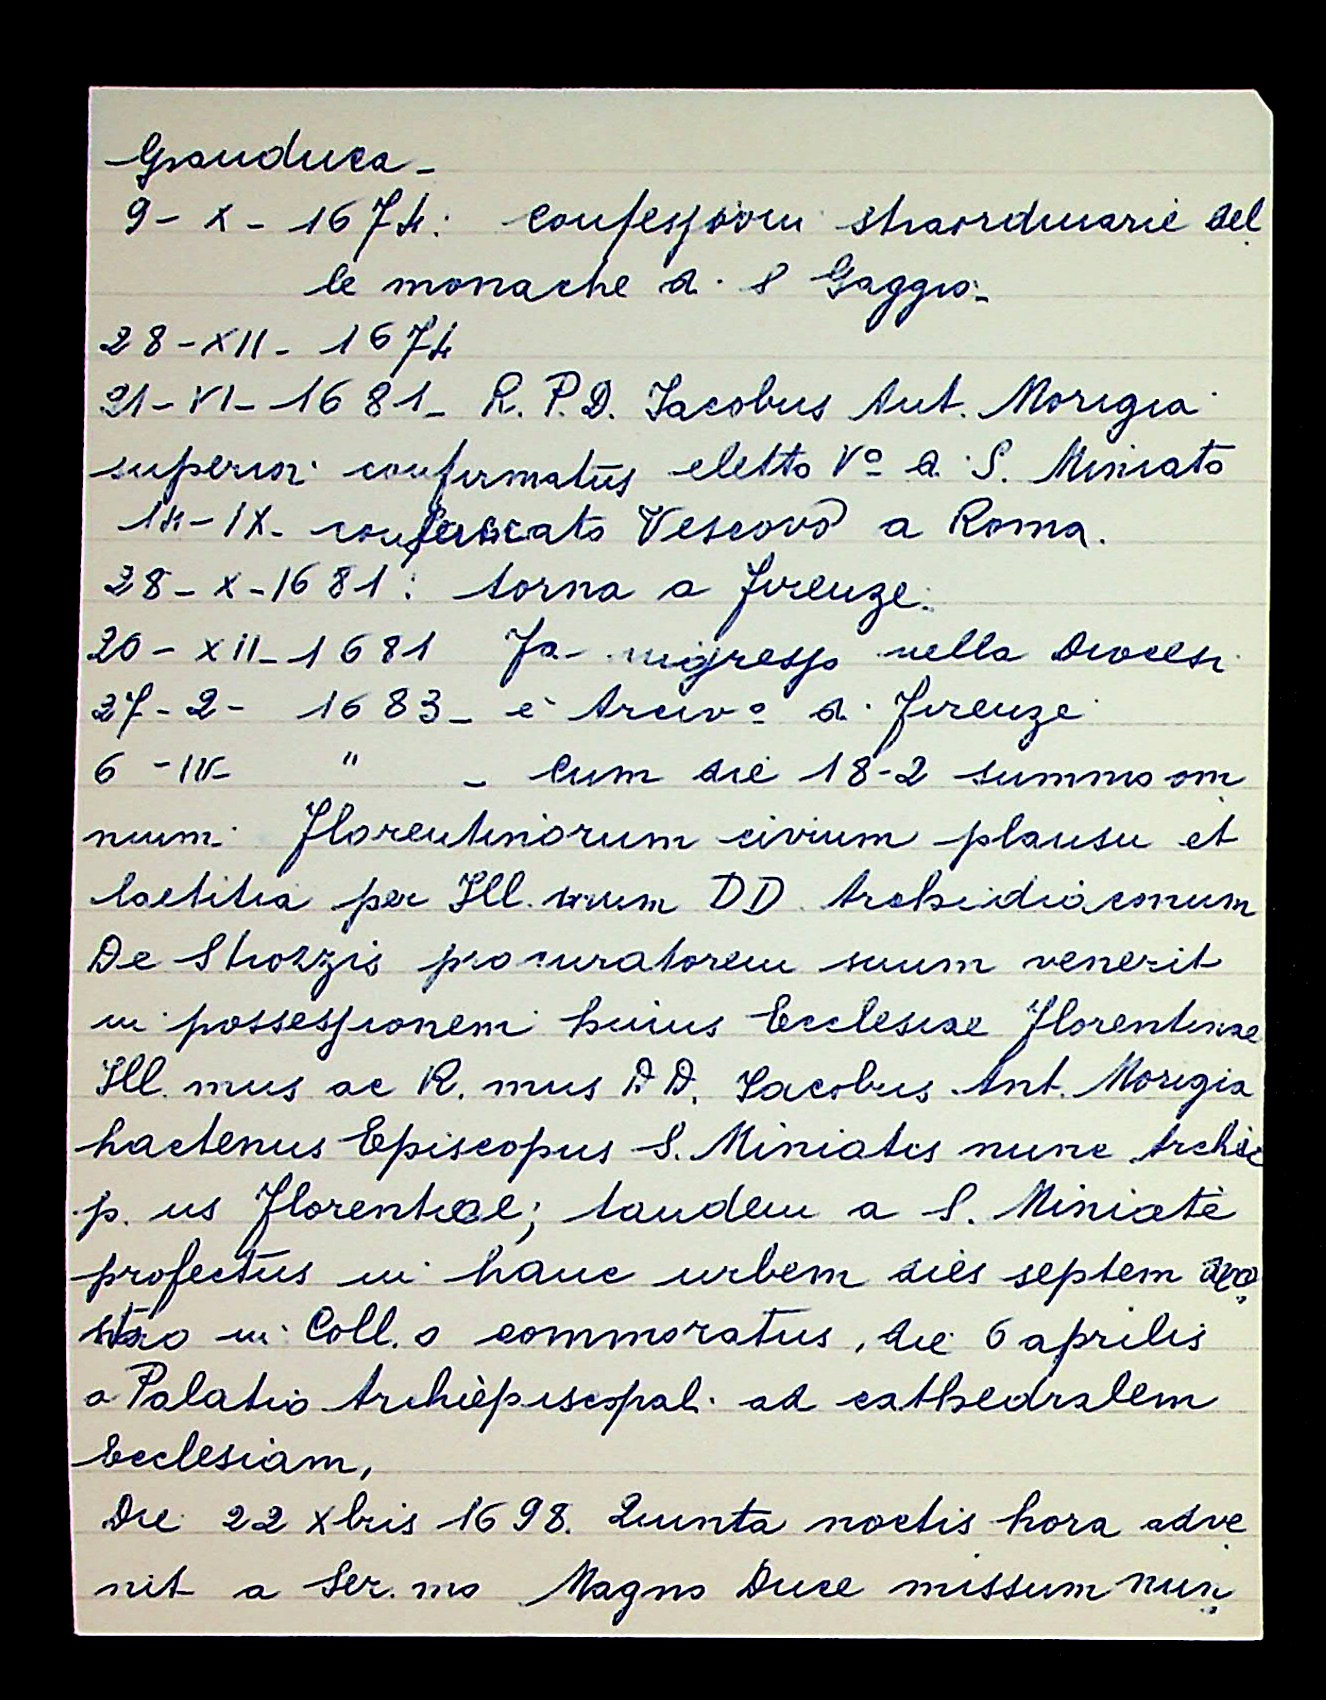 Granduca -
9 - X - 1674: confessioni straordinarie del
le monache di S Gaggio -
28 - XII - 1674
21 - VI - 1681 - R. P. D. Jacobus Ant. Morigia
superior confirmatus eletto Vº di S. Miniato
14 - IX - consacrato Vescovo a Roma.
28 - X - 1681: torna a Firenze.
20 - XII - 1681 Fa ingresso nella Diocesi
27 - 2 - 1683 - è Arcivº di Firenze
6 - IV - " - Cum die 18-2 summo om
nium Florentinorum civium plausu et
laetitia per Ill. mum DD. Archidiaconum
De Strozzis procuratorem suum venerit
in possessionem huius Ecclesiae Florentinae
Ill. mus ac R. mus DD. Jacobus Ant. Morigia
hactenus Episcopus S. Miniatis nunc Archie
p. us Florentiae; tandem a S. Miniate
profectus in hanc urbem dies septem no
stro in Coll. o commoratus, die 6 aprilis
a Palatio Archiepiscopali ad cathedralem
Ecclesiam,
Die 22 Xbris 1698. Quinta noctis hora adve
nit a Ser. mo Magno Duce missum nun